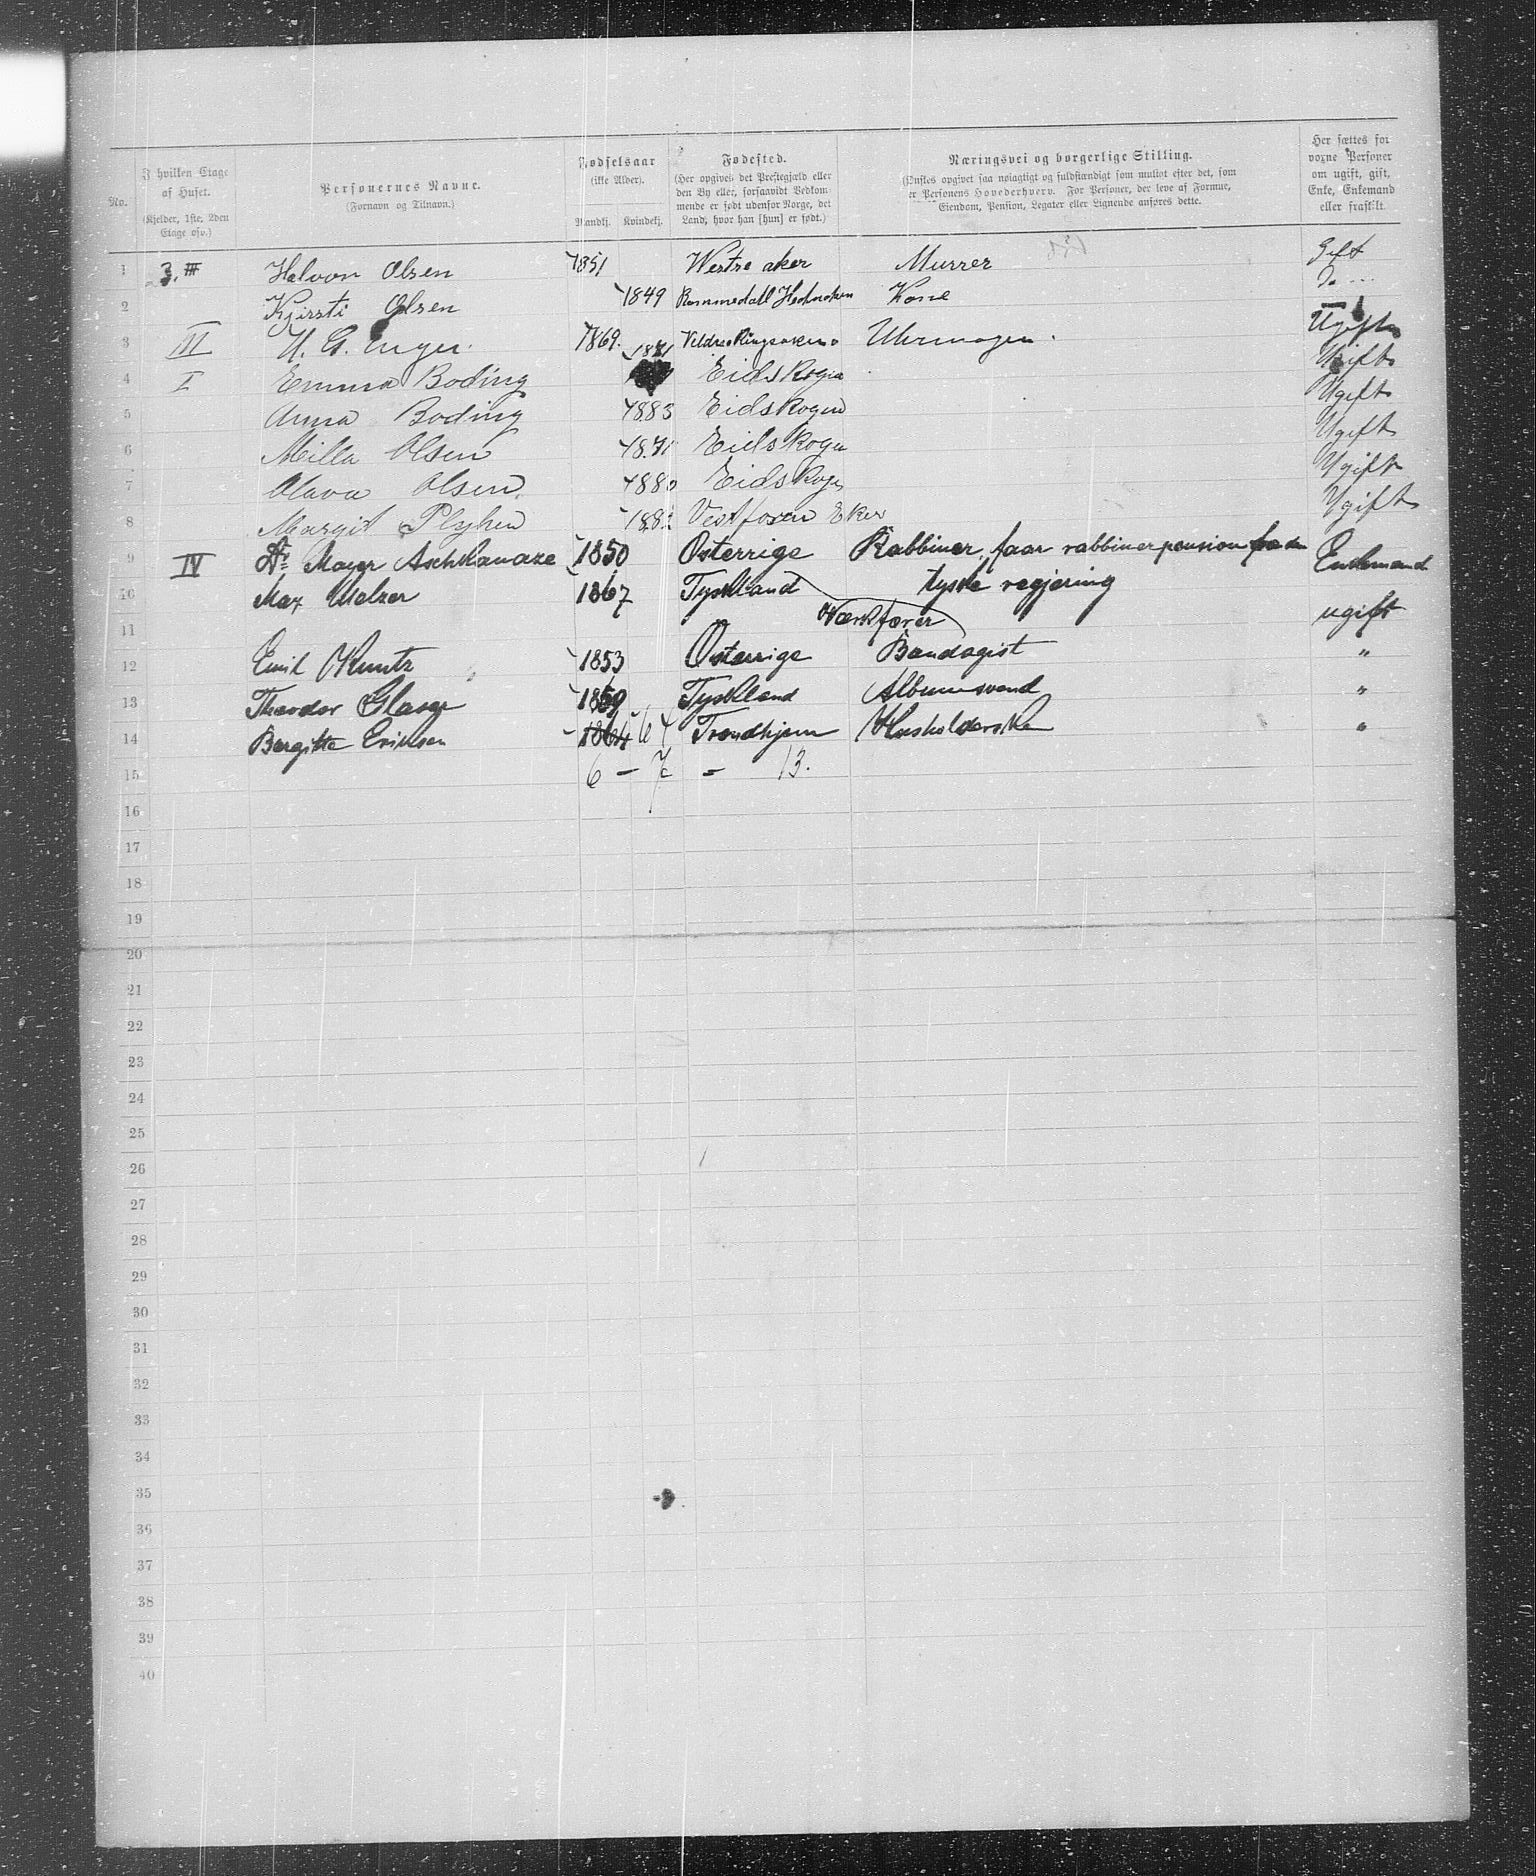 No.
I hvilken Etage af Huset. (Kjelder, 1ste, 2den Etage osv.)
Personernes Navne. (Fornavn og Tilnavn.)
Fødselsaar (ikke Alder). Mandkj. Kvindekj.
Fødested. (Her opgives det Prestegjæld eller den By eller, forsaavidt Vedkommende er født udenfor Norge, det Land, hvor han [hun] er født.)
Næringsvei og borgerlige Stilling. (Ønskes opgivet saa nøiagtigt og fuldstændigt som muligt efter det, som er Personens Hovederhverv. For Personer, der leve af Formue, Eiendom, Pension, Legater eller Lignende anføres dette.)
Her sættes for voxne Personer om ugift, gift, Enke, Enkemand eller fraskilt.
1 3. III Halvon Olsen 1851 Westre aker Murrer Gift
2 Kjirsti Olsen 1849 Rommedall Hedmaken Kone Do
3 III H. G. Enger. 1869. Veldre Ringsaker Uhrmager. Ugift
4 I Emma Boding 1871 Eidskogn Ugift
5 Anna Boding 1883 Eidskogen Ugift
6 Milla Olsen 1871 Eidskogn Ugift
7 Olava Olsen 1880 Eidskogn Ugift
8 Margit Plyhen 188 Vestfosen Eker Ugift
9 IV Dr. Mayer Aschkanaze 1850 Østerrige Rabbiner, faar rabbinerpension fra den Enkemand
10 Max Melzer 1867 Tyskland tyske regjering ugift
11 Værkfører
12 Emil Kuntz 1853 Østerrige Bandagist "
13 Theodor Glaser 1859 Tyskland Albumsvend "
14 Bergitte Eriksen 1864 64 Trondhjem Husholderske "
15 6 – 7 = 13.
16
17
18
19
20
21
22
23
24
25
26
27
28
29
30
31
32
33
34
35
36
37
38
39
40